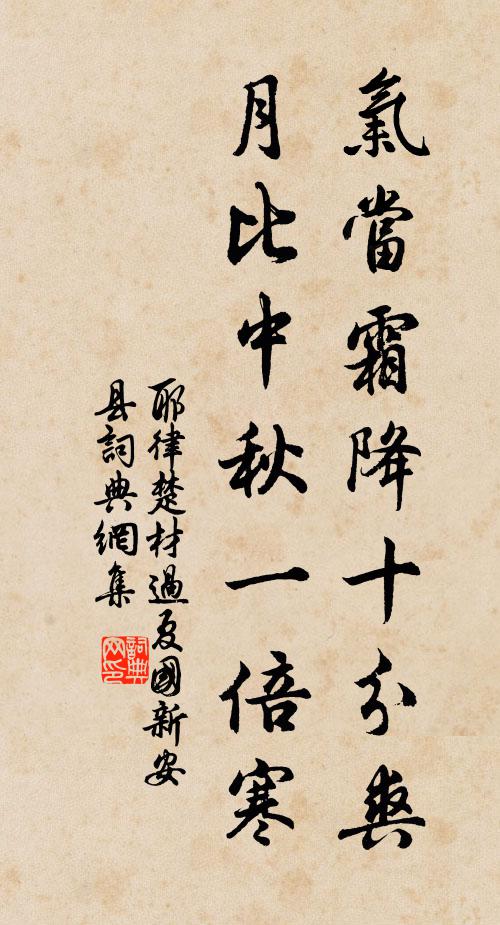 氣當霜降十分爽
月比中秋一倍寒
耶律楚材過夏國新安
县詞典網集
詞典
网印